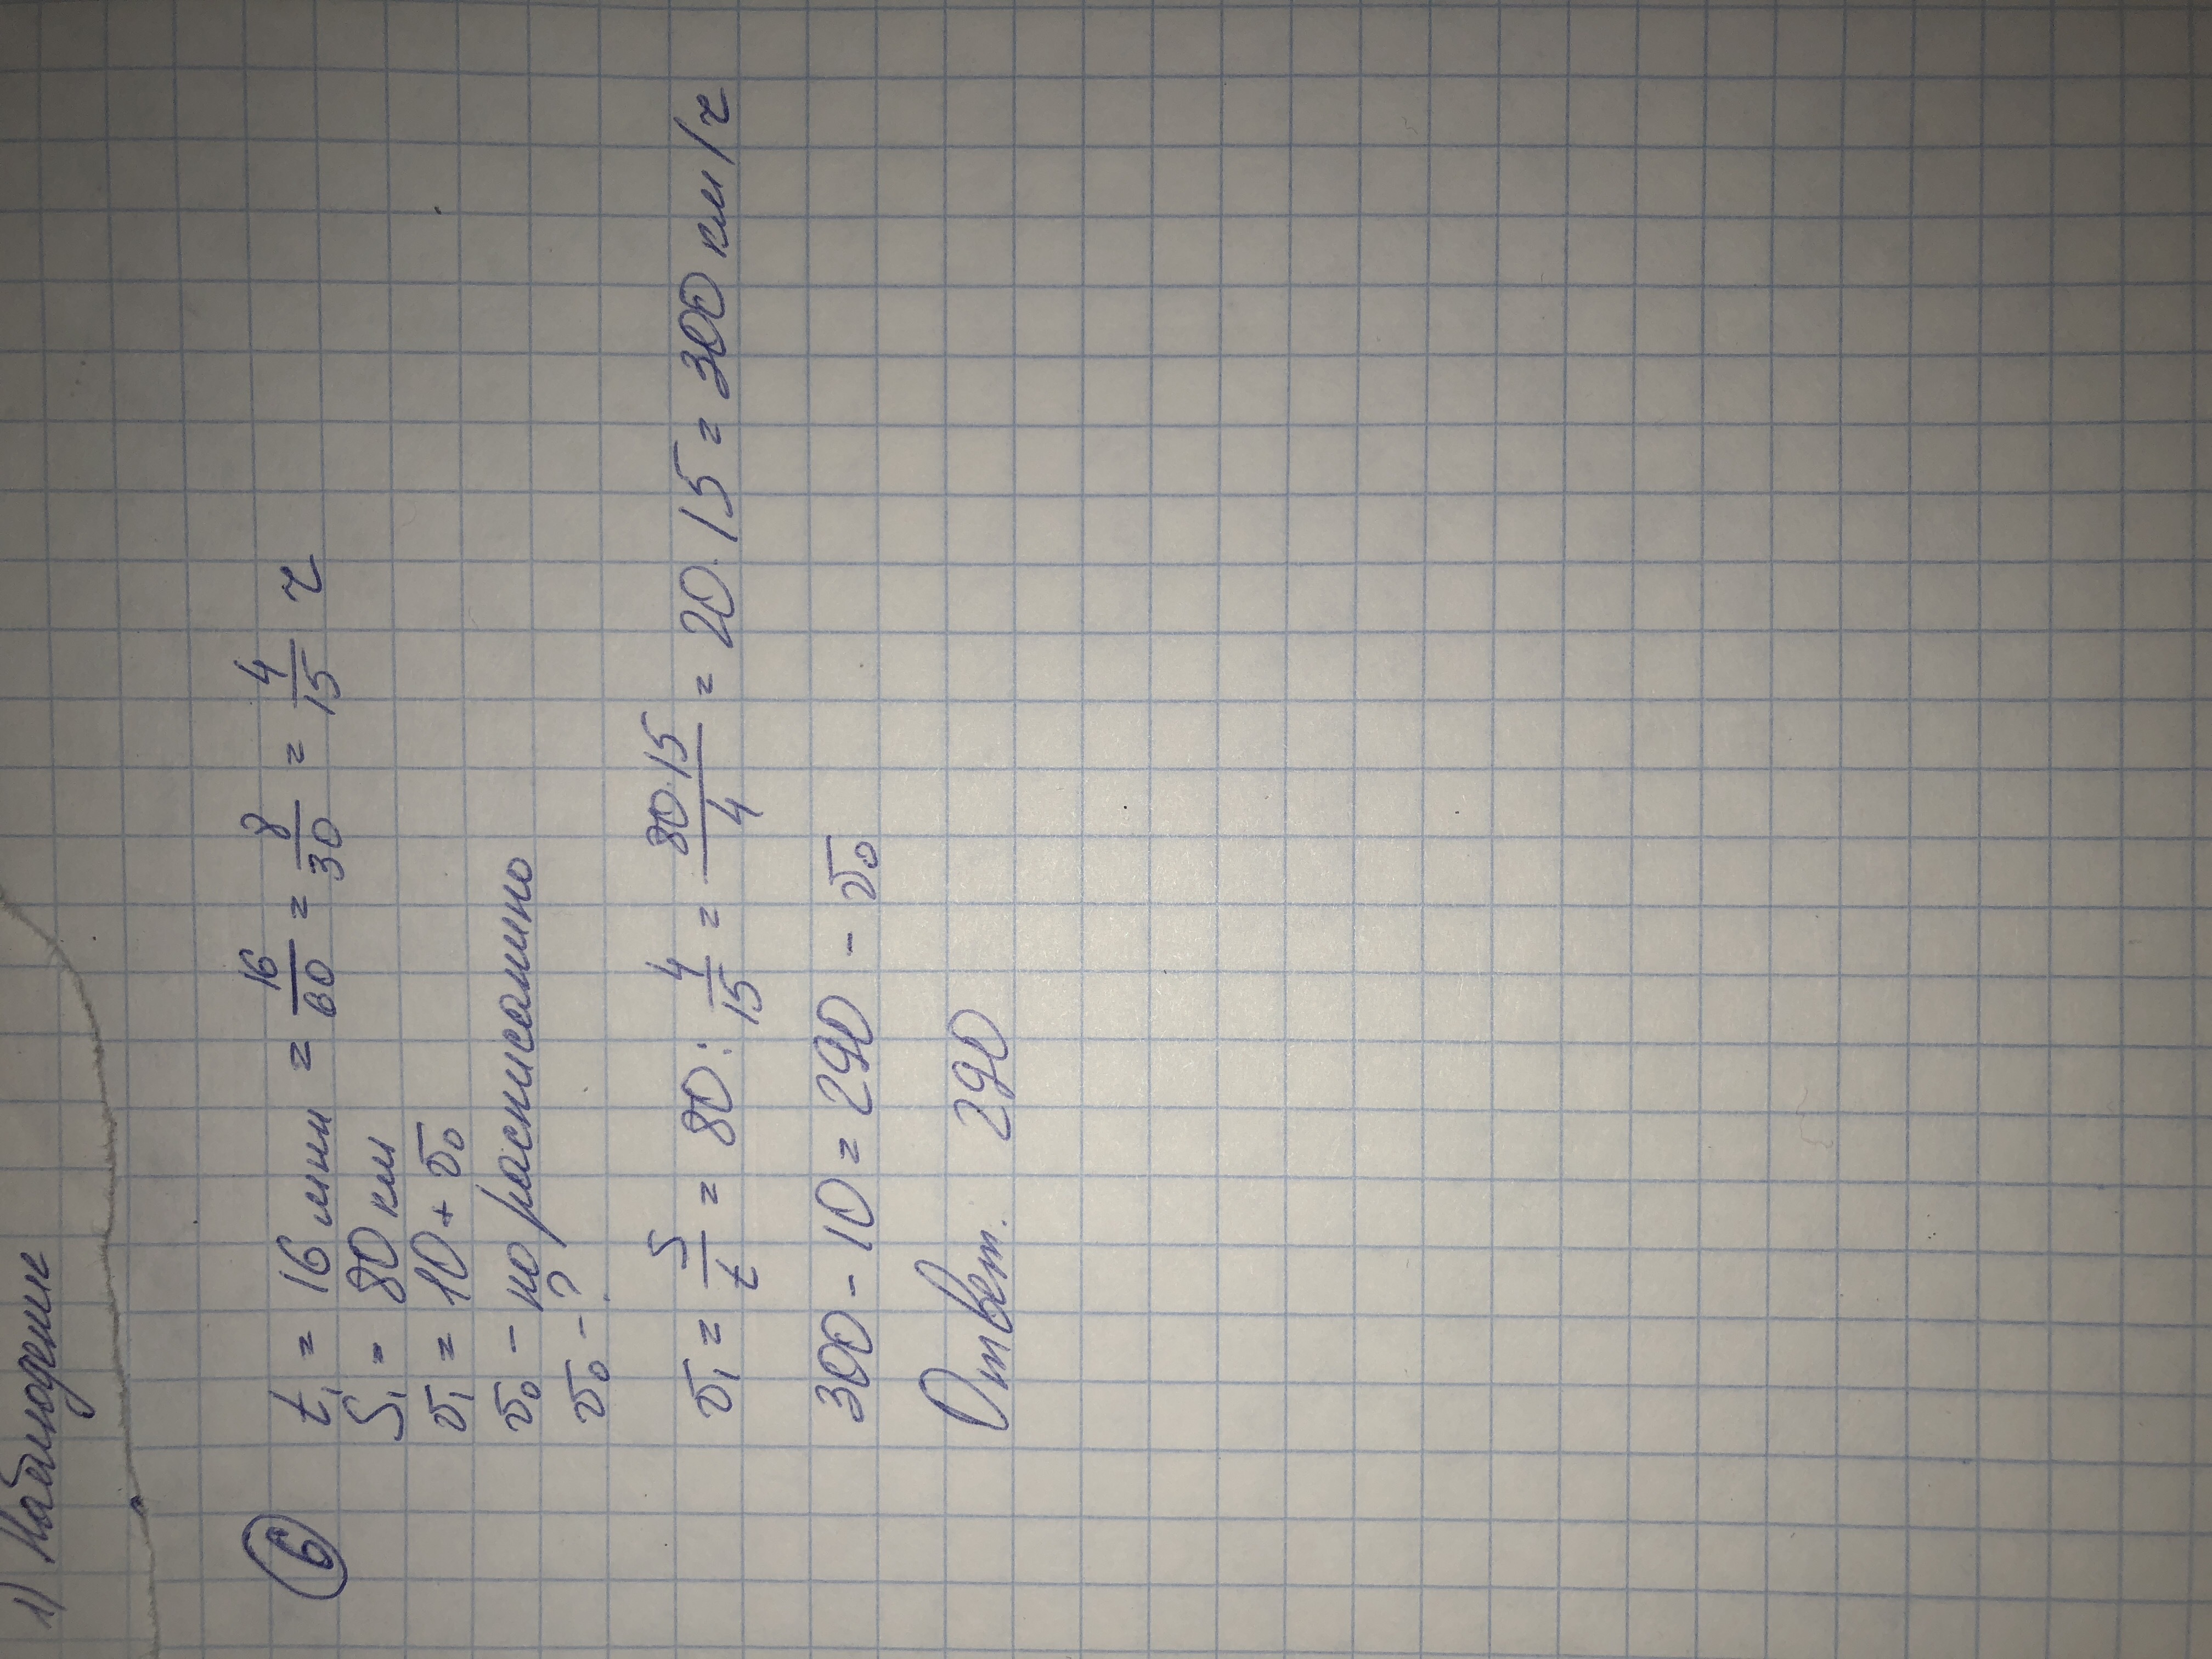 1) Наблюдение
6
t₁ = 16 мин = 16/60 = 8/30 = 4/15 ч
S₁ = 80 км
v₁ = 10 + v₀
v₀ - по расписанию
v₀ - ?
v₁ = S/t = 80 : 4/15 = 80·15/4 = 20·15 = 300 км/ч
300 - 10 = 290 - v₀
Ответ. 290